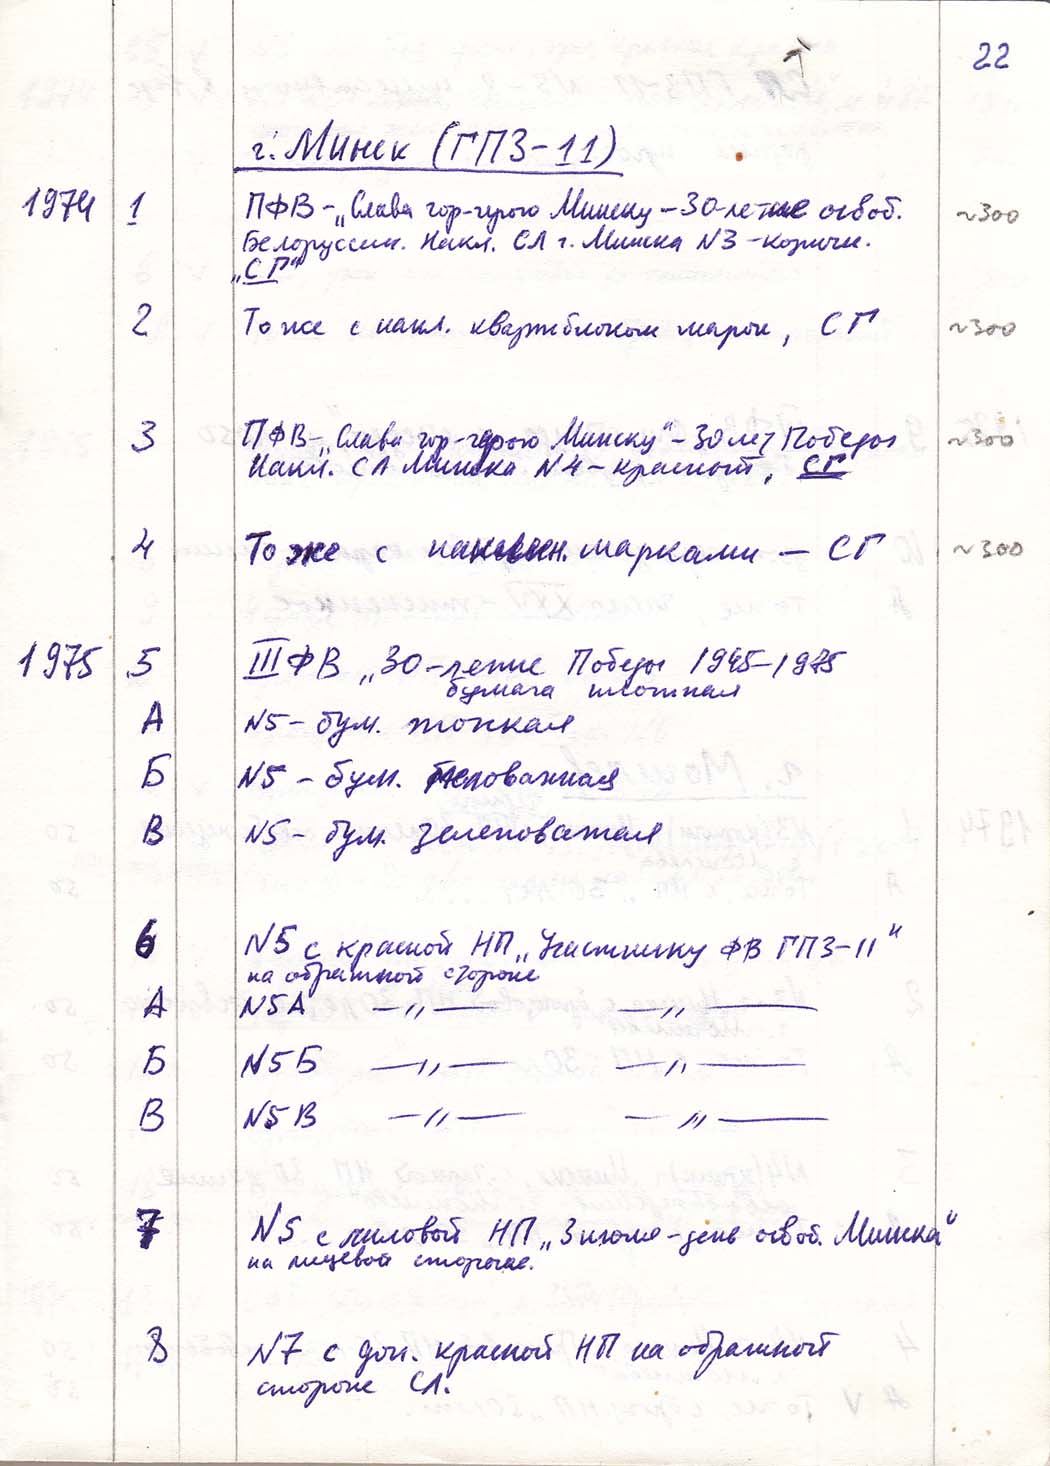 22
г. Минск (ГПЗ-11)
1974 1 ПФВ - „Слава гор-герою Минску - 30-летие освоб. ~300
Белоруссии. Накл. СЛ г. Минска N3 - коричн.
„СГ"
2 То же с накл. квартблоком марок, СГ ~300
3 ПФВ - „Слава гор-герою Минску" - 30 лет Победы ~300
Накл. СЛ Минска N4 - красный, СГ
4 То же с марками - СГ ~300
1975 5 III ФВ „30-летие Победы 1945-1975
бумага плотная
А N5 - бум. тонкая
Б N5 - бум.
В N5 - бум. зеленоватая
6 N5 с красной НП „Участнику ФВ ГПЗ-11"
на обратной стороне
А N5А —„— —„—
Б N5Б —„— —„—
В N5В —„— —„—
7 N5 с лиловой НП „3 июля - день освоб. Минска"
на лицевой стороне.
8 N7 с доп. красной НП на обратной
стороне СЛ.